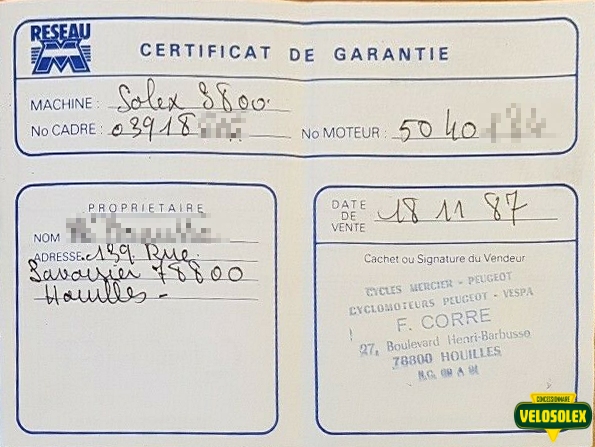 RESEAU
M
CERTIFICAT DE GARANTIE
MACHINE : Solex 3800
No CADRE : 03918
No MOTEUR : 5040
PROPRIETAIRE
NOM
ADRESSE 139 Rue
Lavoisier 78800
Houilles -
DATE DE VENTE 18 11 87
Cachet ou Signature du Vendeur
CYCLES MERCIER - PEUGEOT
CYCLOMOTEURS PEUGEOT - VESPA
F. CORRE
27, Boulevard Henri-Barbusse
78800 HOUILLES
CONCESSIONNAIRE
VELOSOLEX